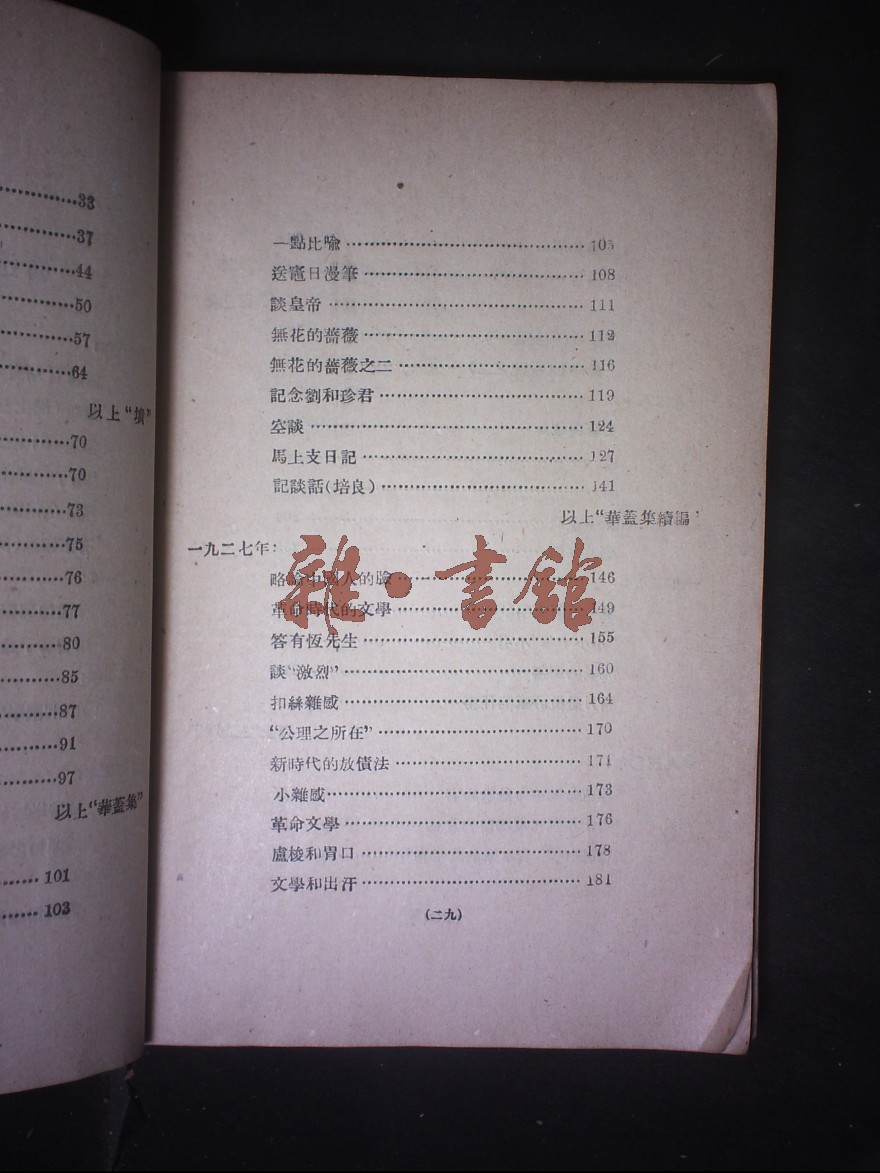 33
37
44
50
57
64
以上“墳”
70
70
73
75
76
77
80
85
87
91
97
以上“華蓋集”
101
103
一點比喻 105
送竈日漫筆 108
談皇帝 111
無花的薔薇 112
無花的薔薇之二 116
記念劉和珍君 119
空談 124
馬上支日記 127
記談話(培良) 141
以上“華蓋集續編”
一九二七年:
略論中國人的臉 146
革命時代的文學 149
答有恆先生 155
談“激烈” 160
扣絲雜感 164
“公理之所在” 170
新時代的放債法 171
小雜感 173
革命文學 176
盧梭和胃口 178
文學和出汗 181
(二九)
雜·書館